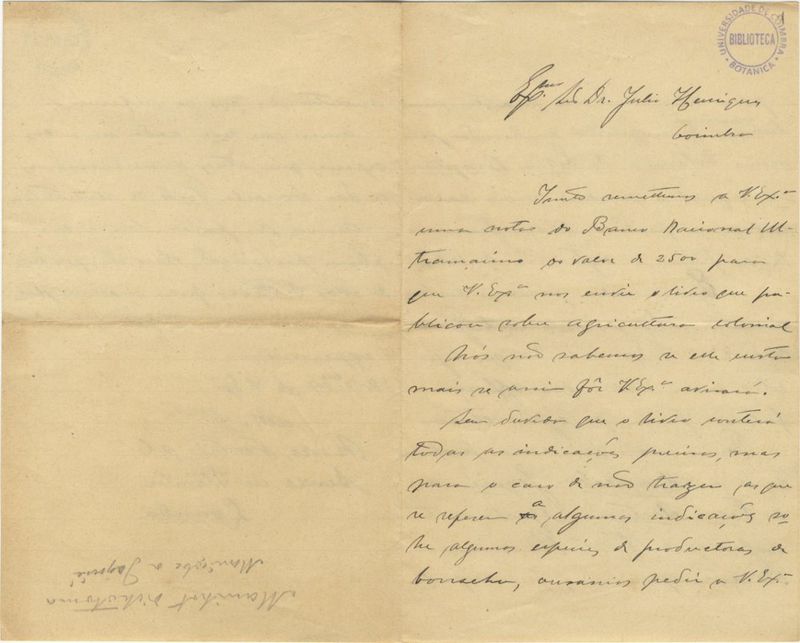 UNIVERSIDADE DE COIMBRA
BIBLIOTECA
BOTANICA
Exmo Snr Dr. Julio Henriques
Coimbra
Junto remettemos a V. Exa
uma notas do Banco Nacional Ul-
tramarino no valor de 2500 para
que V. Exa nos envie o livro que pu-
blicou sobre agricultura colonial
Nós não sabemos se elle custa
mais se assim fôr V. Exa avisará.
Sem duvida que o livro conterá
todas as indicações precisas, mas
para o caso de não trazer as que
se referem a algumas indicações so-
bre algumas especies de productoras de
borracha, ousamos pedir a V. Exa
Manihot dichotoma
Maniçoba de Jequié